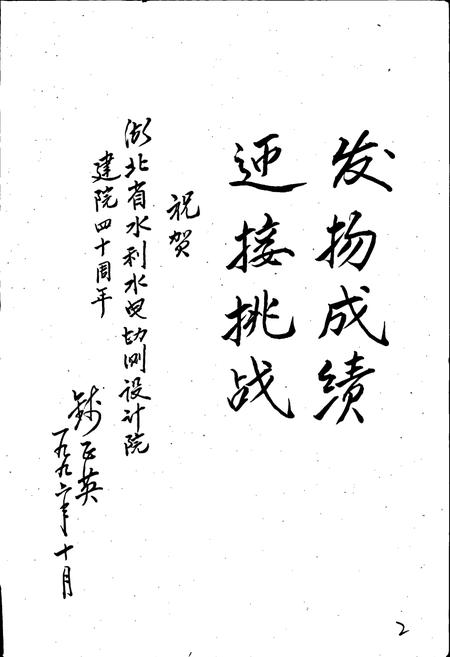 发扬成绩
迎接挑战
祝贺
湖北省水利水电勘测设计院
建院四十周年
钱正英
一九九六年十月
2